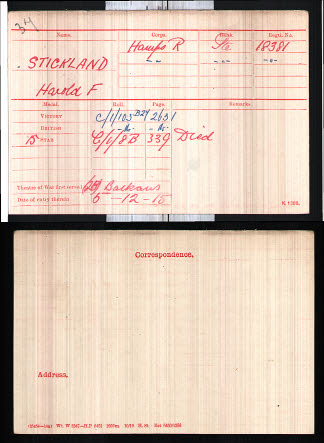 34
Name. Corps. Rank. Regtl. No.
STICKLAND Hamps R Pte. 18381
Harold F
Medal. Roll. Page. Remarks.
VICTORY C/1/103 B24 2631
BRITISH -do- -do-
15 STAR C/1/8B 339 Died
Theatre of War first served in (2B) Balkans
Date of entry therein 5-12-15
K. 1380.
Correspondence.
Address.